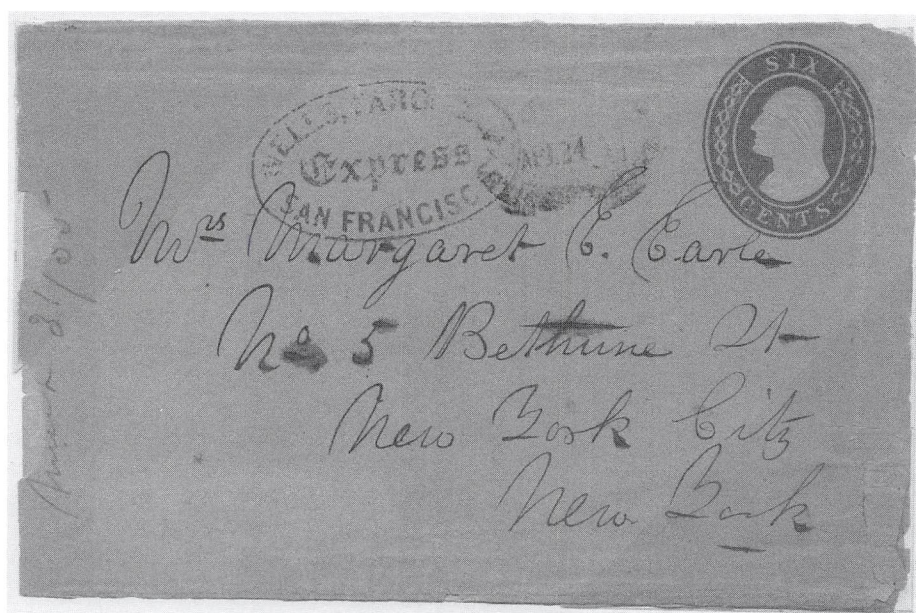 SIX
CENTS
WELLS, FARGO
Express
SAN FRANCISCO
Mrs Margaret E. Earle
No 5 Bethune St
New York City
New York